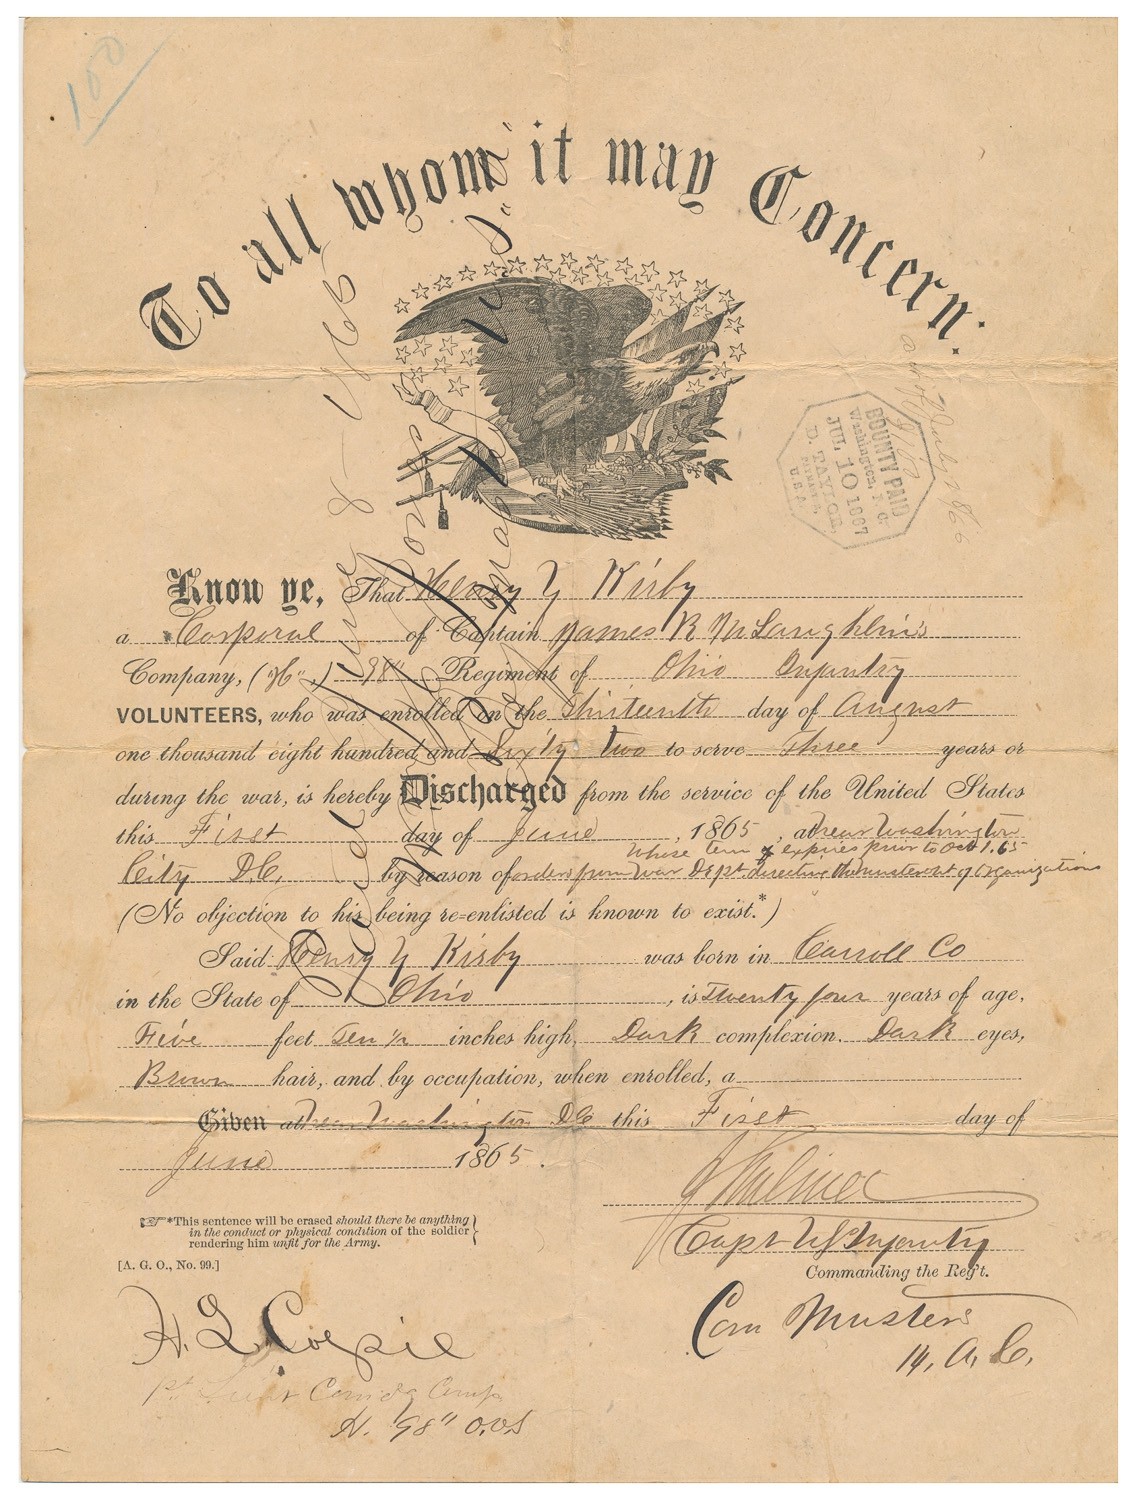 100
To all whom it may Concern:
BOUNTY PAID
Washington, D. C.
JUL 10 1867
D. TAYLOR,
PAYMASTER,
U.S.A.
Know ye, That Henry Y Kirby
a Corporal of Captain James R McLaughlin's
Company, ("H",) 98" Regiment of Ohio Infantry
VOLUNTEERS, who was enrolled on the Thirteenth day of August
one thousand eight hundred and Sixty two to serve Three years or
during the war, is hereby Discharged from the service of the United States
this First day of June, 1865, at near Washington
whose term of expires prior to Oct 1.65
City D.C. by reason of orders from War Dept. directing the muster out of organizations
(No objection to his being re-enlisted is known to exist.*)
Said Henry Y Kirby was born in Carroll Co
in the State of Ohio, is Twenty four years of age,
Five feet Ten ½ inches high, Dark complexion, Dark eyes,
Brown hair, and by occupation, when enrolled, a
Given at near Washington DC this First day of
June 1865.
Capt US Infantry
Commanding the Reg't.
*This sentence will be erased should there be anything
in the conduct or physical condition of the soldier
rendering him unfit for the Army.
[A. G. O., No. 99.]
Com Musters
14, A. C.
H. L.
1st Lieut Comdg Comp
H. 98" O.V.I